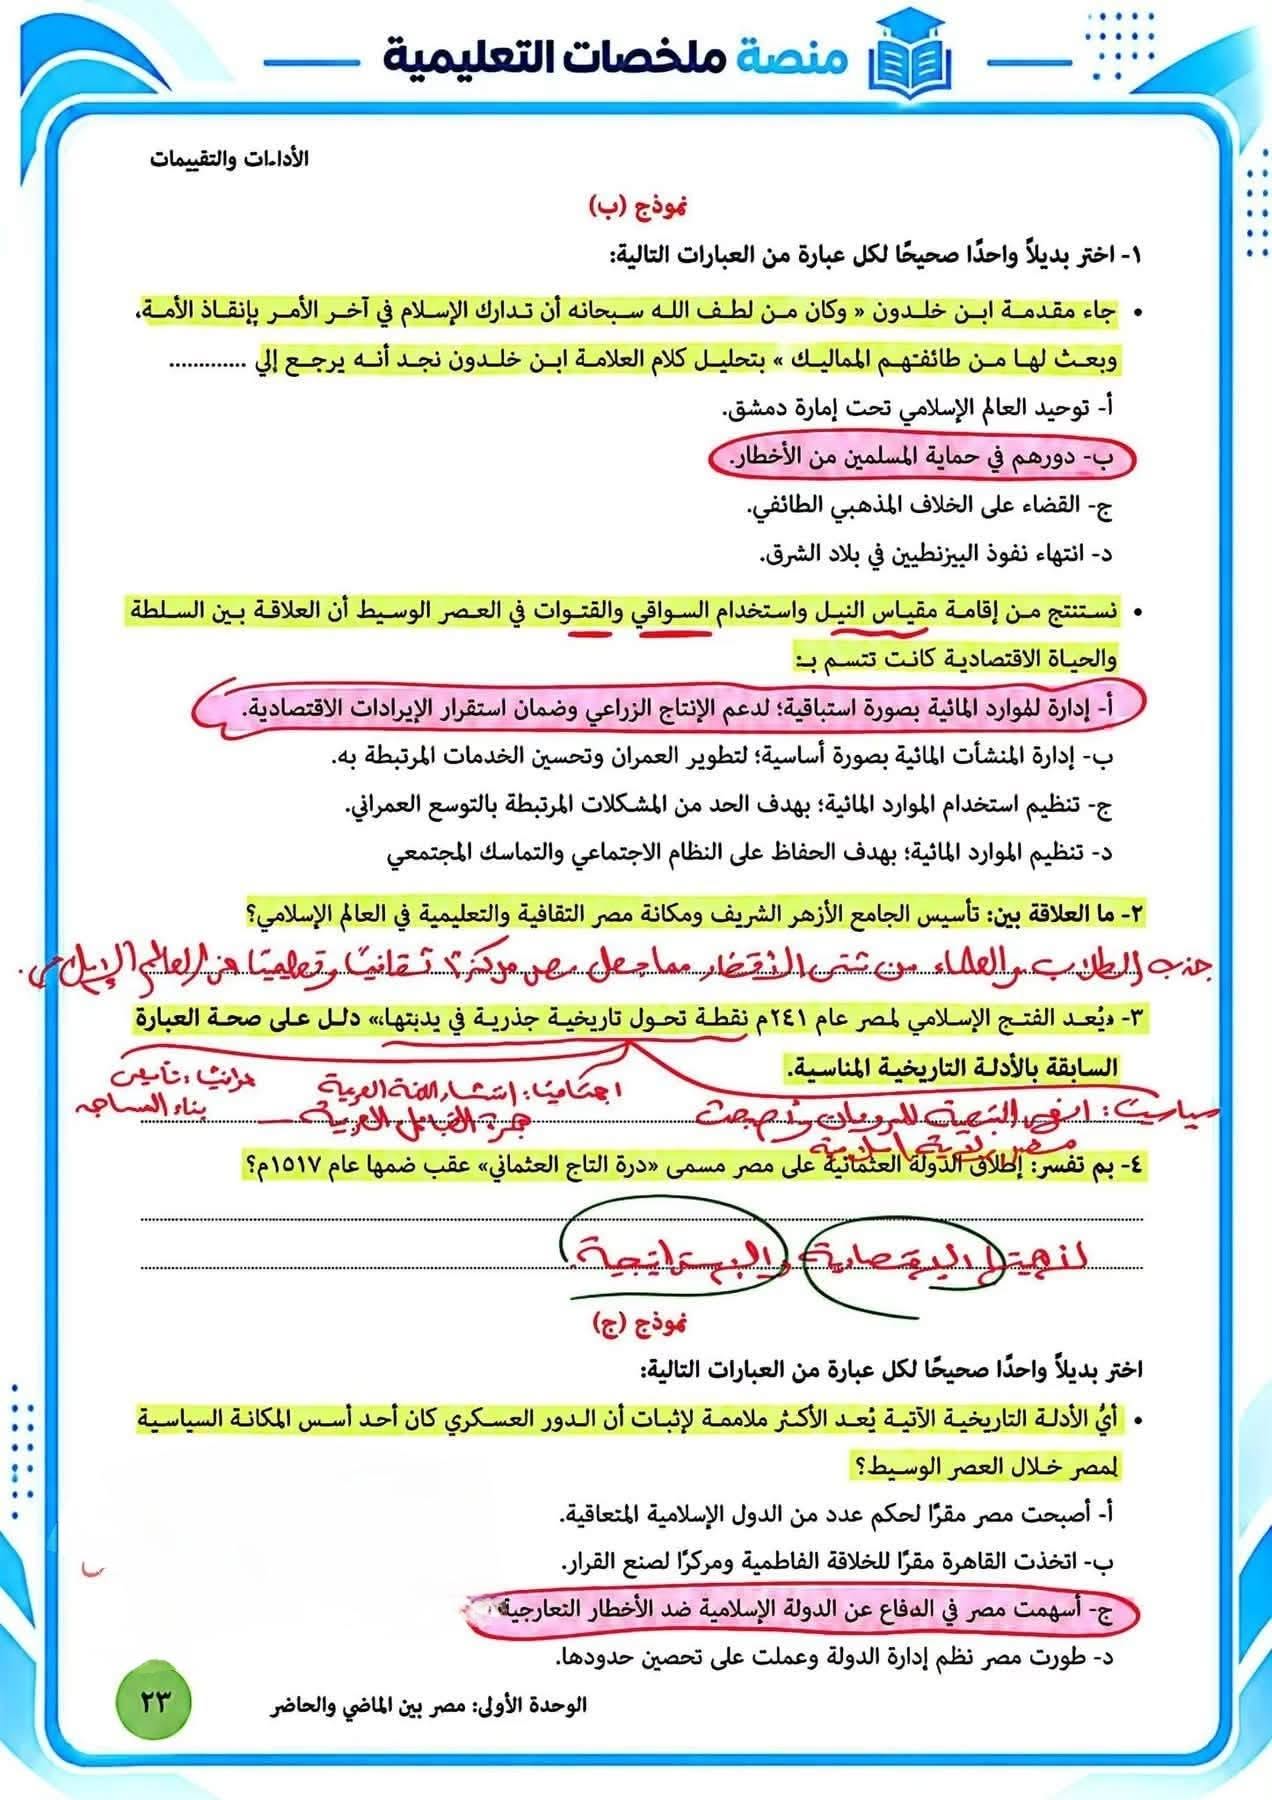 منصة ملخصات التعليمية
الأداءات والتقييمات
نموذج (ب)
١- اختر بديلاً واحدًا صحيحًا لكل عبارة من العبارات التالية:
• جاء مقدمة ابن خلدون « وكان من لطف الله سبحانه أن تدارك الإسلام في آخر الأمر بإنقاذ الأمة،
وبعث لها من طائفتهم المماليك » بتحليل كلام العلامة ابن خلدون نجد أنه يرجع إلي .............
أ- توحيد العالم الإسلامي تحت إمارة دمشق.
ب- دورهم في حماية المسلمين من الأخطار.
ج- القضاء على الخلاف المذهبي الطائفي.
د- انتهاء نفوذ البيزنطيين في بلاد الشرق.
• نستنتج من إقامة مقياس النيل واستخدام السواقي والقنوات في العصر الوسيط أن العلاقة بين السلطة
والحياة الاقتصادية كانت تتسم بـ:
أ- إدارة للموارد المائية بصورة استباقية؛ لدعم الإنتاج الزراعي وضمان استقرار الإيرادات الاقتصادية.
ب- إدارة المنشأت المائية بصورة أساسية؛ لتطوير العمران وتحسين الخدمات المرتبطة به.
ج- تنظيم استخدام الموارد المائية؛ بهدف الحد من المشكلات المرتبطة بالتوسع العمراني.
د- تنظيم الموارد المائية؛ بهدف الحفاظ على النظام الاجتماعي والتماسك المجتمعي
٢- ما العلاقة بين: تأسيس الجامع الأزهر الشريف ومكانة مصر الثقافية والتعليمية في العالم الإسلامي؟
جذب الطلاب والعلماء من شتى الأقطار مما جعل مصر مركزًا ثقافيًا وتعليميًا في العالم الإسلامي.
٣- «يُعد الفتح الإسلامي لمصر عام ٢٤١م نقطة تحول تاريخية جذرية في يدبتها» دلل على صحة العبارة
السابقة بالأدلة التاريخية المناسبة.
سياسيًا: انهى التبعية للرومان وأصبحت اجتماعيًا: انتشار اللغة العربية عمرانيًا: تأسيس
مصر إسلامية هجرة القبائل العربية بناء المساجد
٤- بم تفسر: إطلاق الدولة العثمانية على مصر مسمى «درة التاج العثماني» عقب ضمها عام ١٥١٧م؟
لأهميتها الاقتصادية والاستراتيجية.
نموذج (ج)
اختر بديلاً واحدًا صحيحًا لكل عبارة من العبارات التالية:
• أيُّ الأدلة التاريخية الآتية يُعد الأكثر ملاممة لإثبات أن الدور العسكري كان أحد أسس المكانة السياسية
لمصر خلال العصر الوسيط؟
أ- أصبحت مصر مقرًا لحكم عدد من الدول الإسلامية المتعاقية.
ب- اتخذت القاهرة مقرًا للخلاقة الفاطمية ومركزًا لصنع القرار.
ج- أسهمت مصر في الدفاع عن الدولة الإسلامية ضد الأخطار التعارجية
د- طورت مصر نظم إدارة الدولة وعملت على تحصين حدودها.
الوحدة الأولى: مصر بين الماضي والحاضر
٢٣